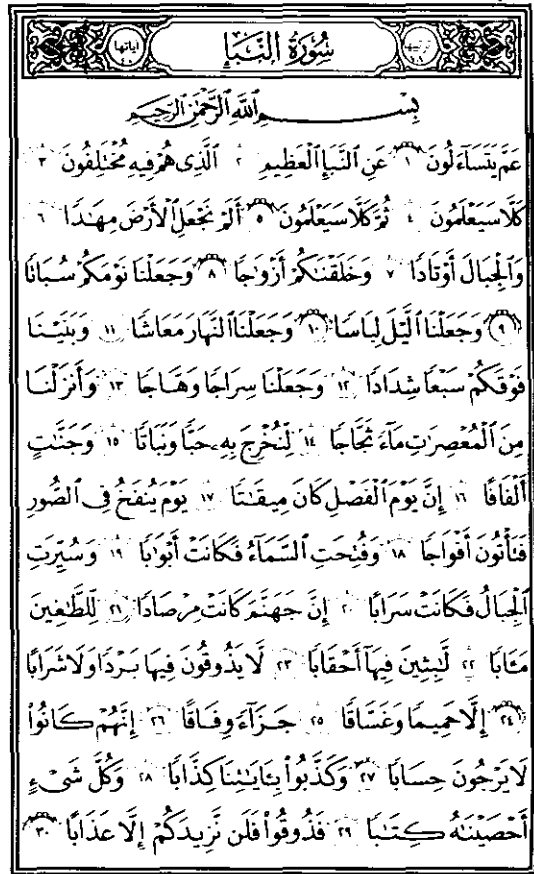 ترتيبها ٧٨ سُورَةُ النَّبَإِ آياتها ٤٠
بِسْمِ اللَّهِ الرَّحْمَٰنِ الرَّحِيمِ
عَمَّ يَتَسَآءَلُونَ ١ عَنِ ٱلنَّبَإِ ٱلْعَظِيمِ ٢ ٱلَّذِى هُمْ فِيهِ مُخْتَلِفُونَ ٣
كَلَّا سَيَعْلَمُونَ ٤ ثُمَّ كَلَّا سَيَعْلَمُونَ ٥ أَلَمْ نَجْعَلِ ٱلْأَرْضَ مِهَٰدًا ٦
وَٱلْجِبَالَ أَوْتَادًا ٧ وَخَلَقْنَٰكُمْ أَزْوَٰجًا ٨ وَجَعَلْنَا نَوْمَكُمْ سُبَاتًا
٩ وَجَعَلْنَا ٱلَّيْلَ لِبَاسًا ١٠ وَجَعَلْنَا ٱلنَّهَارَ مَعَاشًا ١١ وَبَنَيْنَا
فَوْقَكُمْ سَبْعًا شِدَادًا ١٢ وَجَعَلْنَا سِرَاجًا وَهَّاجًا ١٣ وَأَنزَلْنَا
مِنَ ٱلْمُعْصِرَٰتِ مَآءً ثَجَّاجًا ١٤ لِّنُخْرِجَ بِهِۦ حَبًّا وَنَبَاتًا ١٥ وَجَنَّٰتٍ
أَلْفَافًا ١٦ إِنَّ يَوْمَ ٱلْفَصْلِ كَانَ مِيقَٰتًا ١٧ يَوْمَ يُنفَخُ فِى ٱلصُّورِ
فَتَأْتُونَ أَفْوَاجًا ١٨ وَفُتِحَتِ ٱلسَّمَآءُ فَكَانَتْ أَبْوَٰبًا ١٩ وَسُيِّرَتِ
ٱلْجِبَالُ فَكَانَتْ سَرَابًا ٢٠ إِنَّ جَهَنَّمَ كَانَتْ مِرْصَادًا ٢١ لِّلطَّٰغِينَ
مَـَٔابًا ٢٢ لَّٰبِثِينَ فِيهَآ أَحْقَابًا ٢٣ لَّا يَذُوقُونَ فِيهَا بَرْدًا وَلَا شَرَابًا
٢٤ إِلَّا حَمِيمًا وَغَسَّاقًا ٢٥ جَزَآءً وِفَاقًا ٢٦ إِنَّهُمْ كَانُوا۟
لَا يَرْجُونَ حِسَابًا ٢٧ وَكَذَّبُوا۟ بِـَٔايَٰتِنَا كِذَّابًا ٢٨ وَكُلَّ شَىْءٍ
أَحْصَيْنَٰهُ كِتَٰبًا ٢٩ فَذُوقُوا۟ فَلَن نَّزِيدَكُمْ إِلَّا عَذَابًا ٣٠